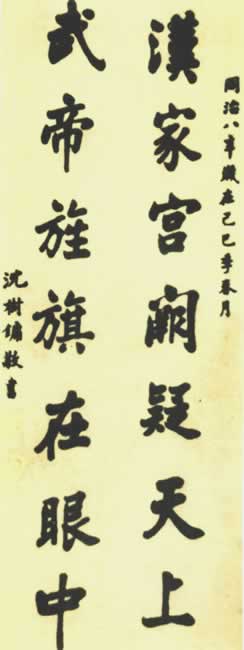 同治八年歲在己巳季春月
漢家宮闕疑天上
武帝旌旗在眼中
沈樹鏞敬書